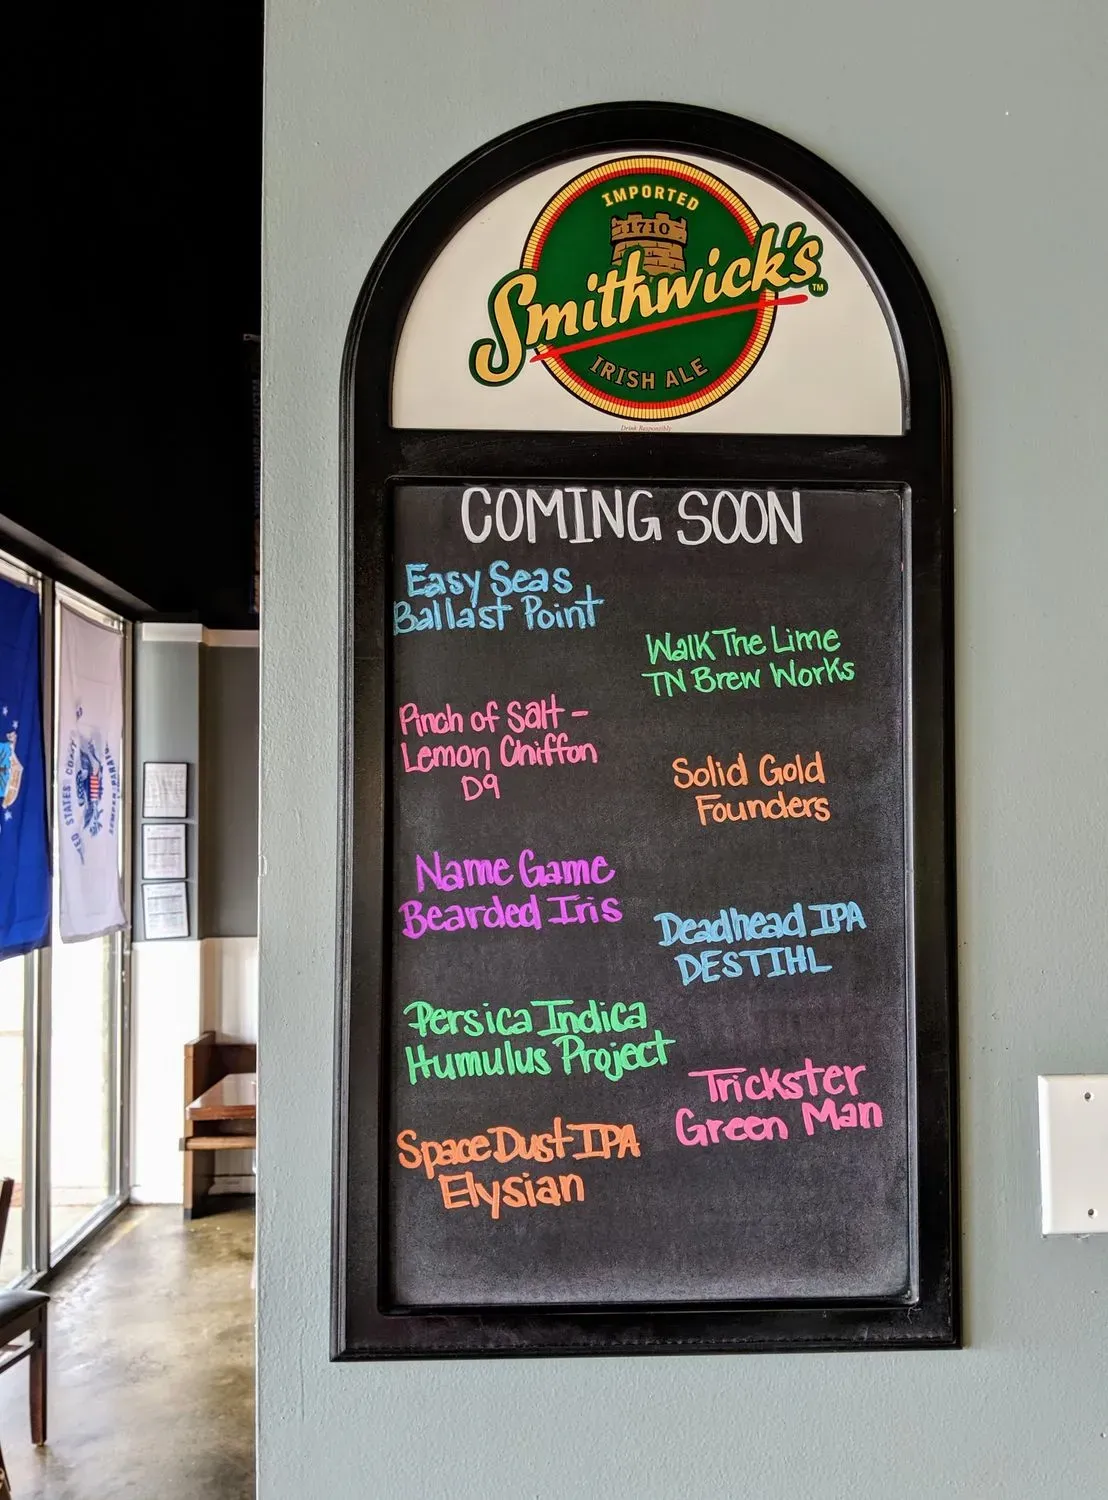 IMPORTED
1710
Smithwick's
TM
IRISH ALE
Drink Responsibly
COMING SOON
Easy Seas
Ballast Point
Walk The Lime
TN Brew Works
Pinch of Salt -
Lemon Chiffon
D9
Solid Gold
Founders
Name Game
Bearded Iris
Deadhead IPA
DESTIHL
Persica Indica
Humulus Project
Trickster
Green Man
Space Dust IPA
Elysian